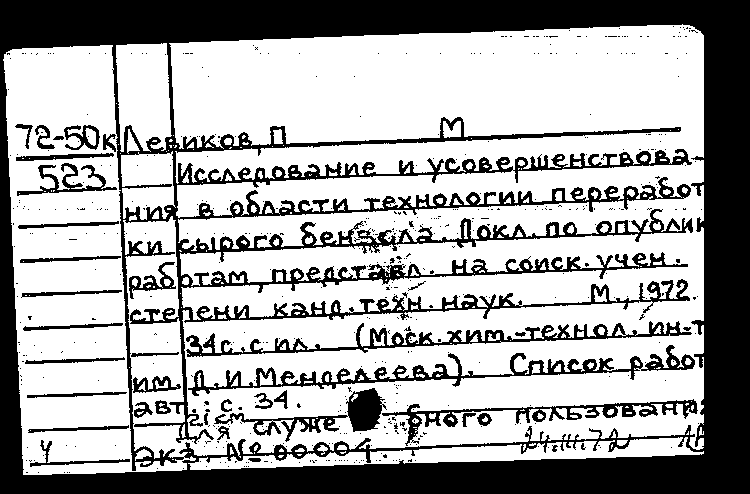 72-50к Левиков, П М
523 Исследование и усовершенствова-
ния в области технологии переработ
ки сырого бензола. Докл. по опублик
работам, представл. на соиск. учен.
степени канд. техн. наук. М., 1972.
34с. с ил. (Моск. хим.-технол. ин-т
им. Д.И.Менделеева). Список работ
авт.: с. 34.
Для служебного пользования
Экз. № 00004. 24.III.72